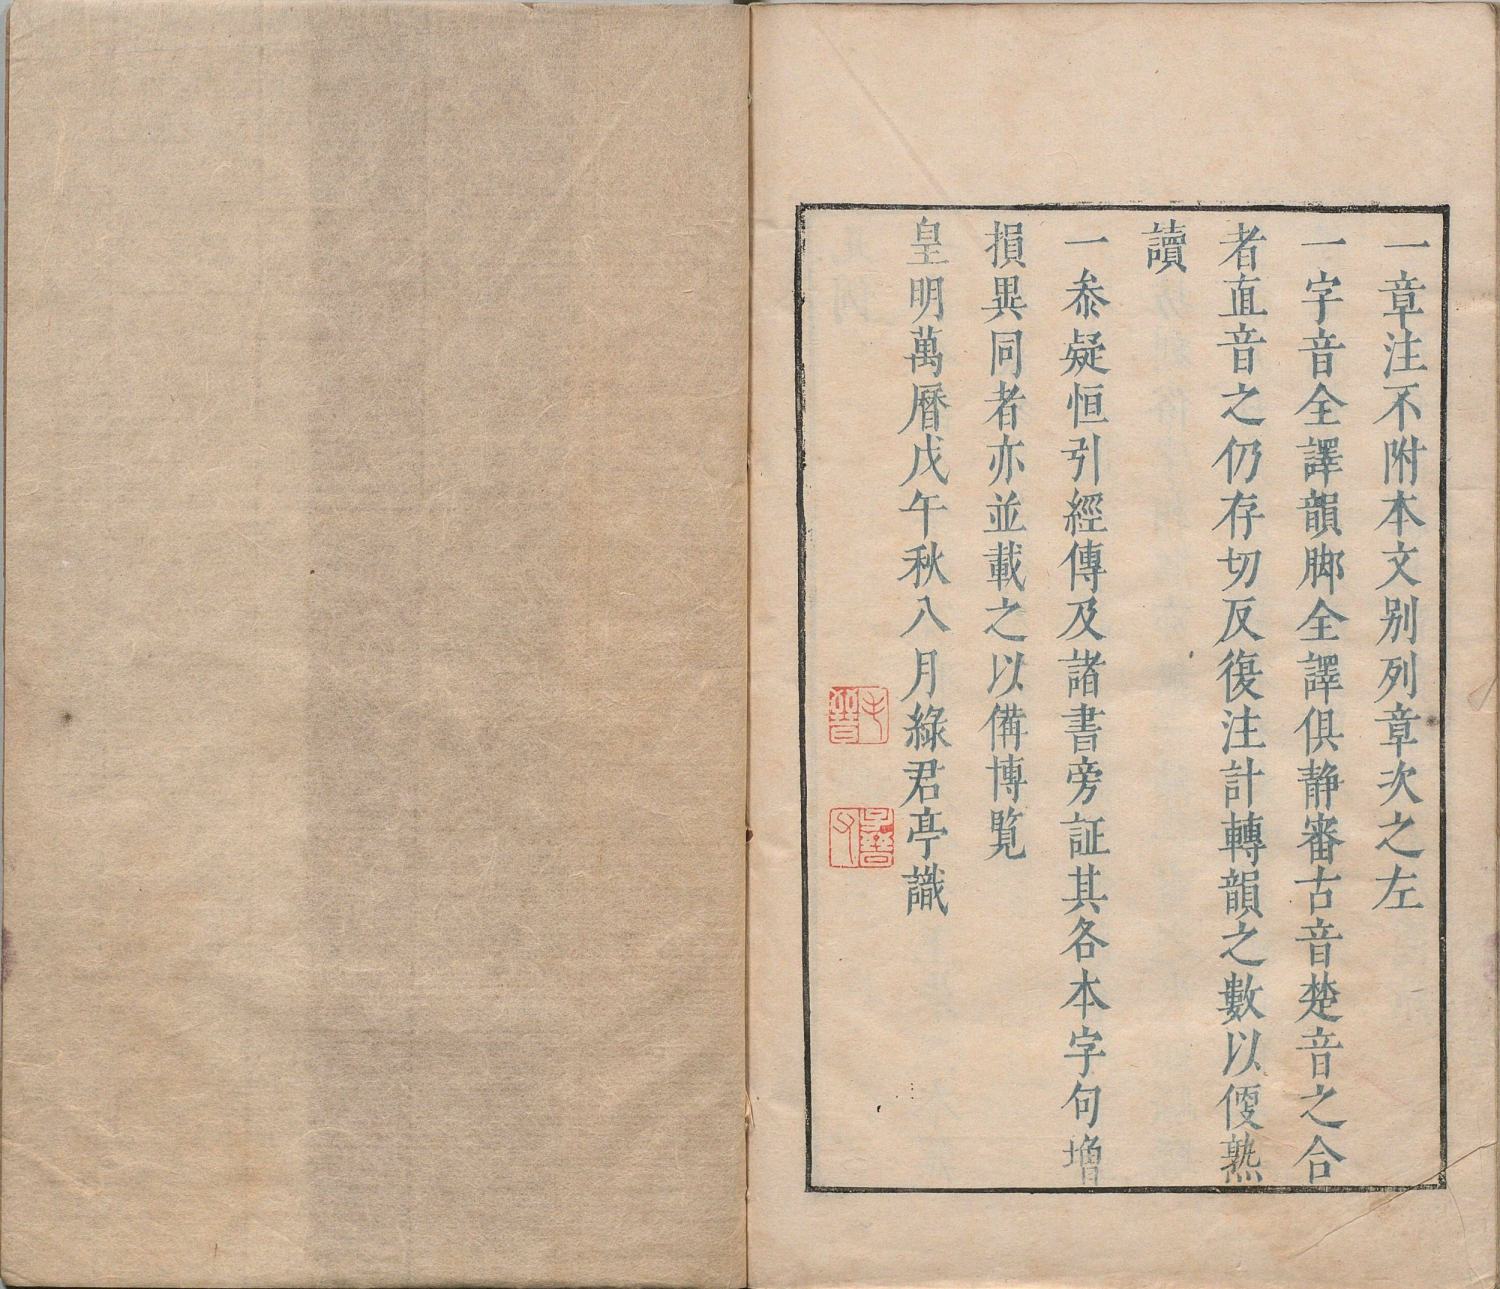 一章注不附本文别列章次之左
一字音全譯韻脚全譯俱靜審古音楚音之合
者直音之仍存切反復注計轉韻之數以便熟
讀
一叅疑恒引經傳及諸書旁証其各本字句増
損異同者亦並載之以備博覧
皇明萬曆戊午秋八月綠君亭識
毛晉
子晉